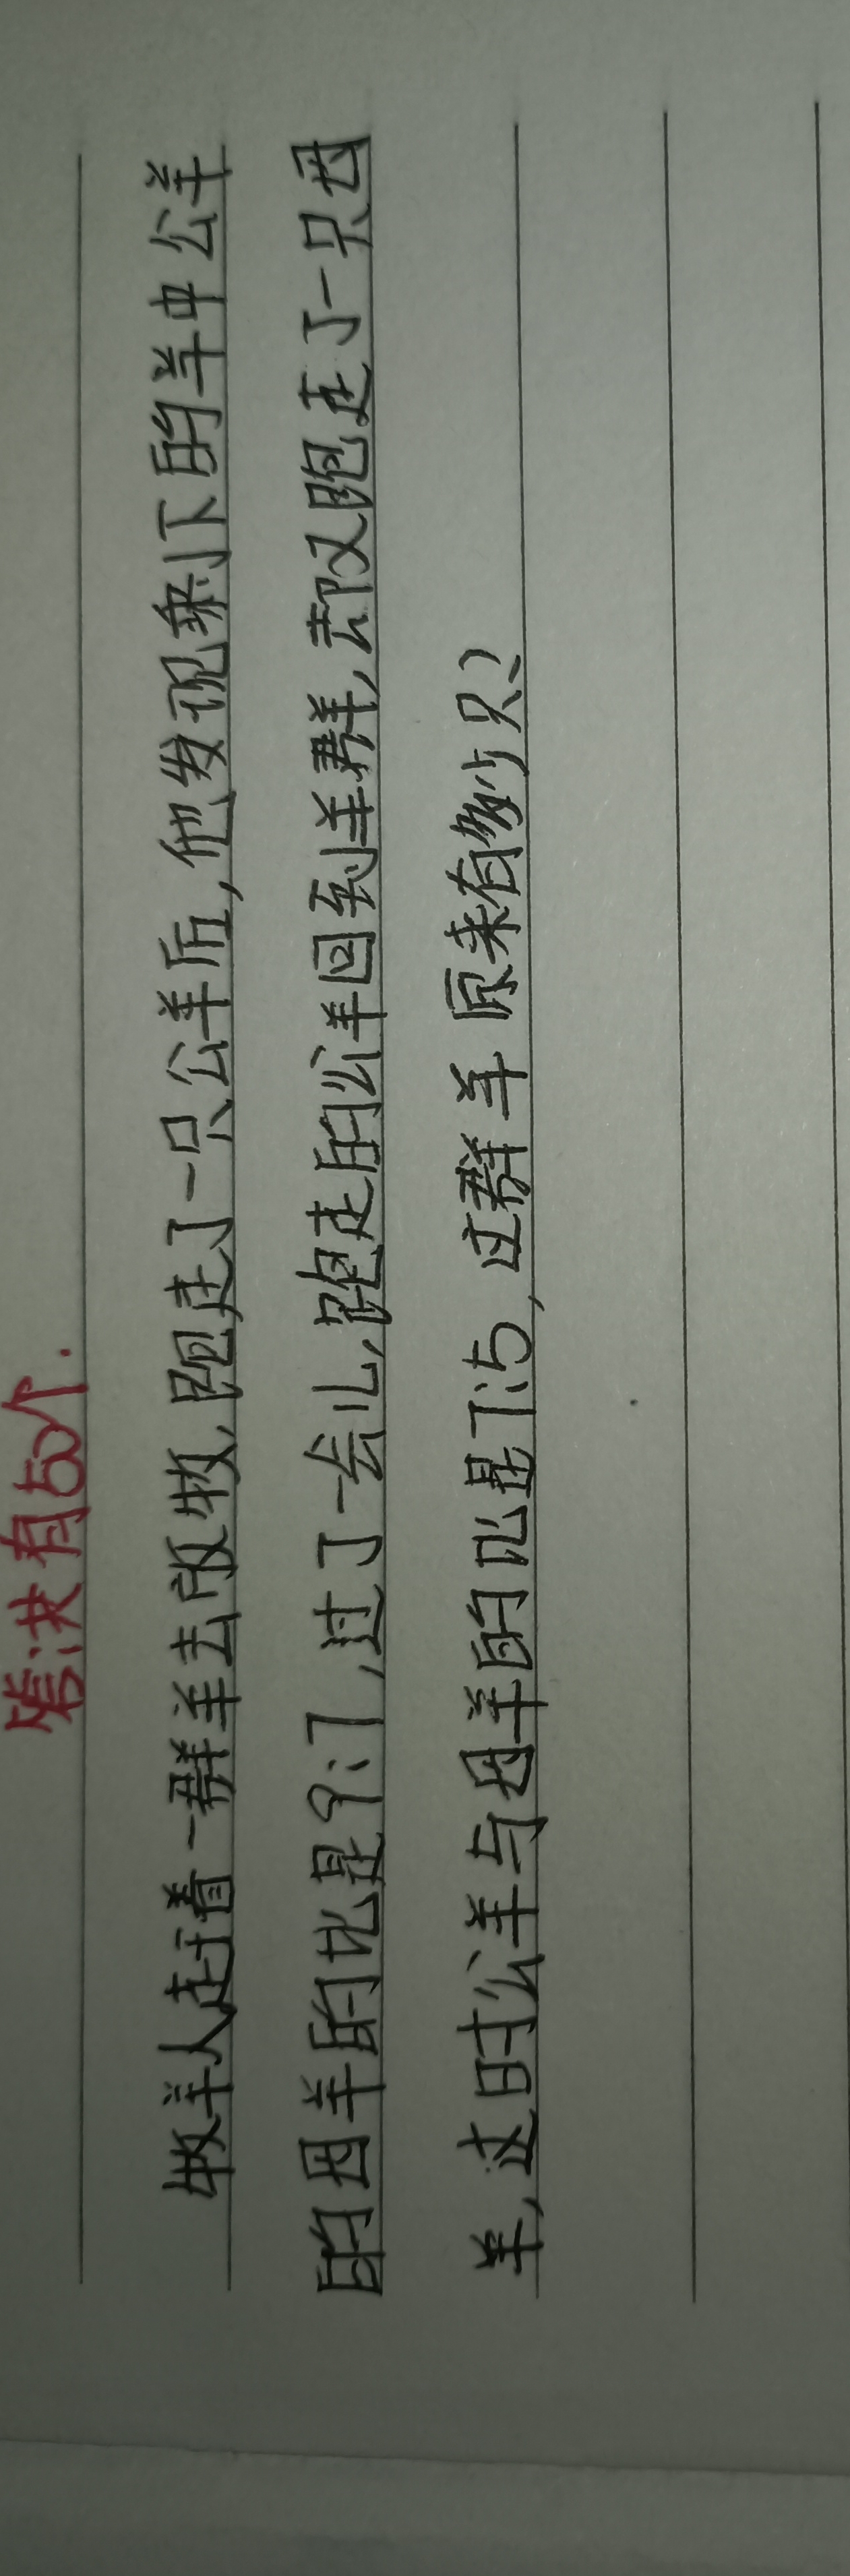 答:共有50个.
牧羊人赶着一群羊去放牧,跑走了一只公羊后,他发现剩下的羊中公羊
的母羊的比是9:7,过了一会儿,跑走的公羊回到羊群,却又跑走了一只母
羊,这时公羊与母羊的比是7:5,这群羊原来有多少只?